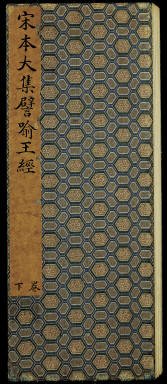 宋本大集譬喻王經
卷下